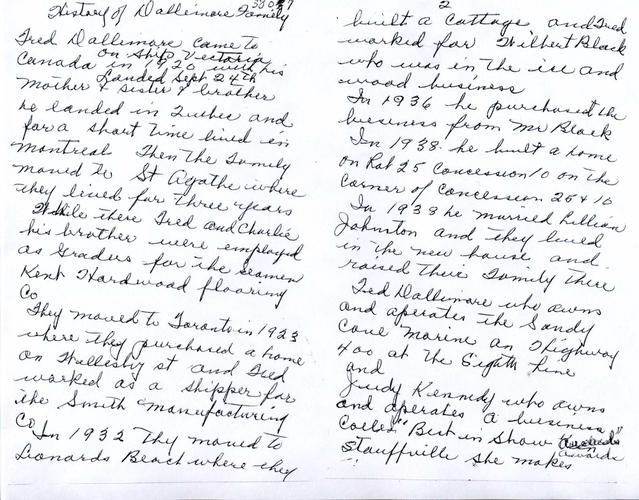 History of Dallimore Family
Fred Dallimore came to
on Ship Vestaria
Canada in 1920 with his
Landed Sept 24th
Mother & sister & brother
he landed in Quebec and
for a short time lived in
Montreal Then the Family
moved to St Agathe where
they lived for three years
While there Fred and Charlie
his brother were employed
as Graders for the Seamen
Kent Hardwood flooring
Co
They moved to Toronto in 1923
where they purchased a home
on st and Fred
worked as a shipper for
the Smith manufacturing
Co
In 1932 They moved to
Leonards Beach where they
2
built a Cottage and Fred
worked for Wilbert Black
who was in the ice and
wood business
In 1936 he purchased the
business from Mr Black
In 1938 he built a home
on Lot 25 Concession 10 on the
corner of Concession 25 & 10
In 1939 he married Lillian
Johnston and they lived
in the new house and
raised their Family there
Ted Dallimore who owns
and operates the Sandy
Cove Marine on Highway
400 at the Eighth Line
and
Judy Kennedy who owns
and operates a business
called "Best in Show
awards"
in
Stouffville She makes